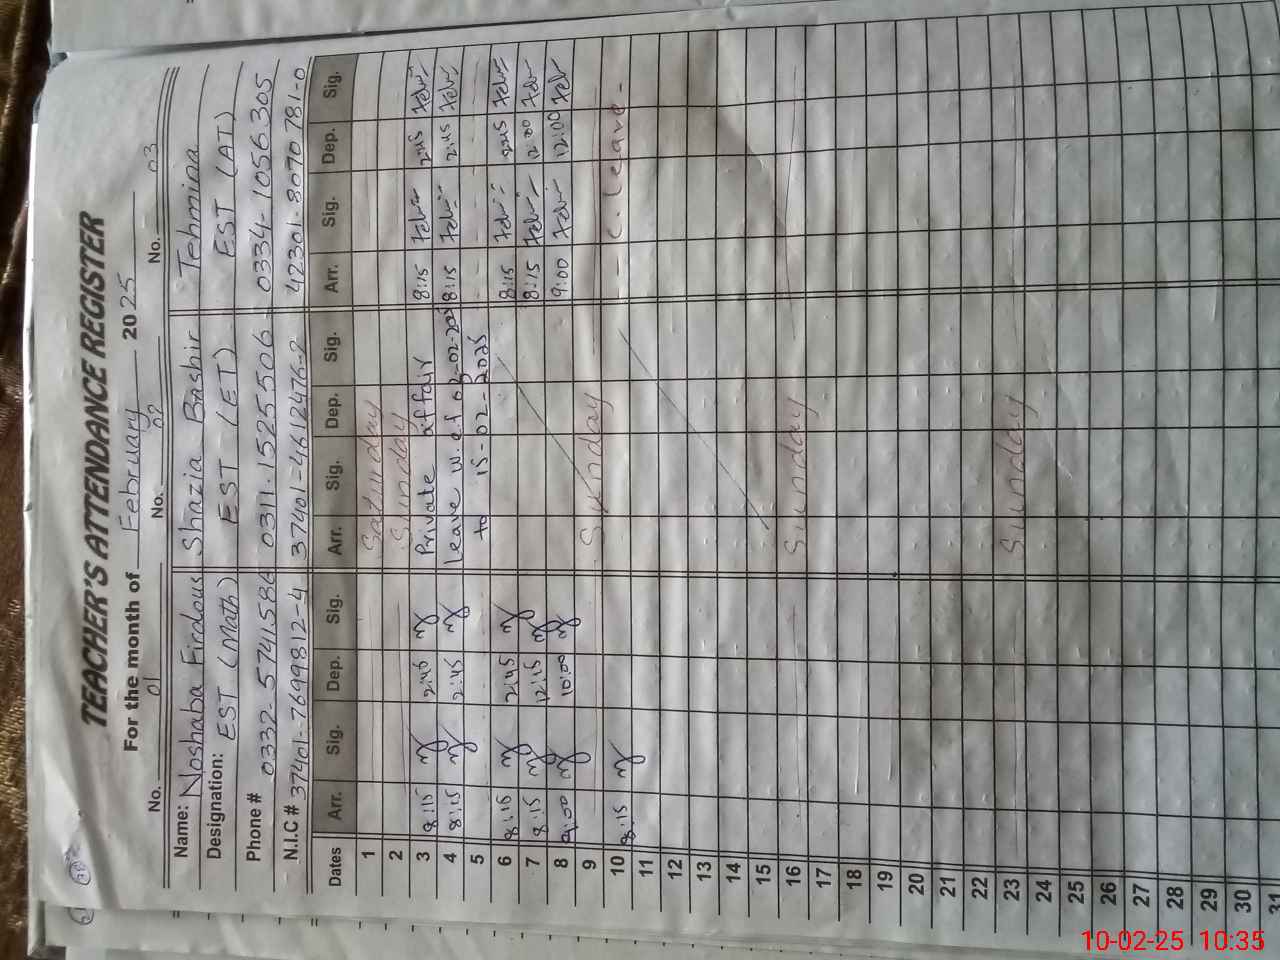 TEACHER'S ATTENDANCE REGISTER
For the month of February 2025
No. 01 No. 02 No. 03
Name: Noshaba Firdous Shazia Bashir Tehmina
Designation: EST (Math) EST (ET) EST (AT)
Phone # 0332-5741586 0311-1525506 0334-1056305
N.I.C # 37401-7699812-4 37401-4612476-2 42301-8070781-0
Dates Arr. Sig. Dep. Sig. Arr. Sig. Dep. Sig. Arr. Sig. Dep. Sig.
1 Saturday
2 Sunday
3 8:15 2:45 Private affair 8:15 2:45
4 8:15 2:45 leave w.e.f 03-02-2025 8:15 2:45
5 to 15-02-2025
6 8:15 2:45 8:15 2:45
7 8:15 12:15 8:15 12:00
8 9:00 10:00 9:00 12:00
9 Sunday
10 8:15 C. leave
11
12
13
14
15
16 Sunday
17
18
19
20
21
22
23 Sunday
24
25
26
27
28
29
30
31
10-02-25 10:35